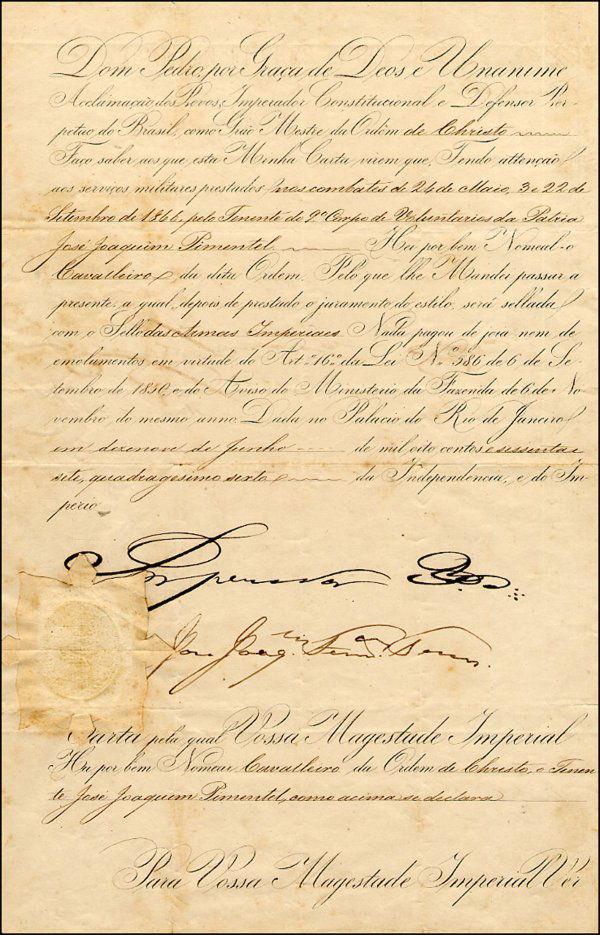 Dom Pedro, por Graça de Deos e Unanime
Acclamação dos Povos, Imperador Constitucional e Defensor Per-
petuo do Brasil, como Grão Mestre da Ordem de Christo
Faço saber aos que esta Minha Carta virem que, Tendo attenção
aos serviços militares prestados nos combates de 24 de Maio, 3 e 22 de
Setembro de 1866, pelo Tenente do 9º Corpo de Voluntarios da Patria
José Joaquim Pimentel Hei por bem Nomeal-o
Cavalleiro da dita Ordem. Pelo que lhe Mandei passar a
presente, a qual, depois de prestado o juramento do estylo, será sellada
com o Sello das Armas Imperiaes. Nada pagou de joia nem de
emolumentos em virtude do Artº 16º da Lei Nº 586 de 6 de Se-
tembro de 1850, e do Aviso do Ministerio da Fazenda de 6 de No-
vembro do mesmo anno. Dada no Palacio do Rio de Janeiro
em dezenove de Junho de mil oito centos e sessenta e
sete, quadragesimo sexto da Independencia, e do Im-
perio
Imperador
Carta pela qual Vossa Magestade Imperial
Ha por bem Nomear Cavalleiro da Ordem de Christo, o Tenen-
te José Joaquim Pimentel, como acima se declara
Para Vossa Magestade Imperial Ver